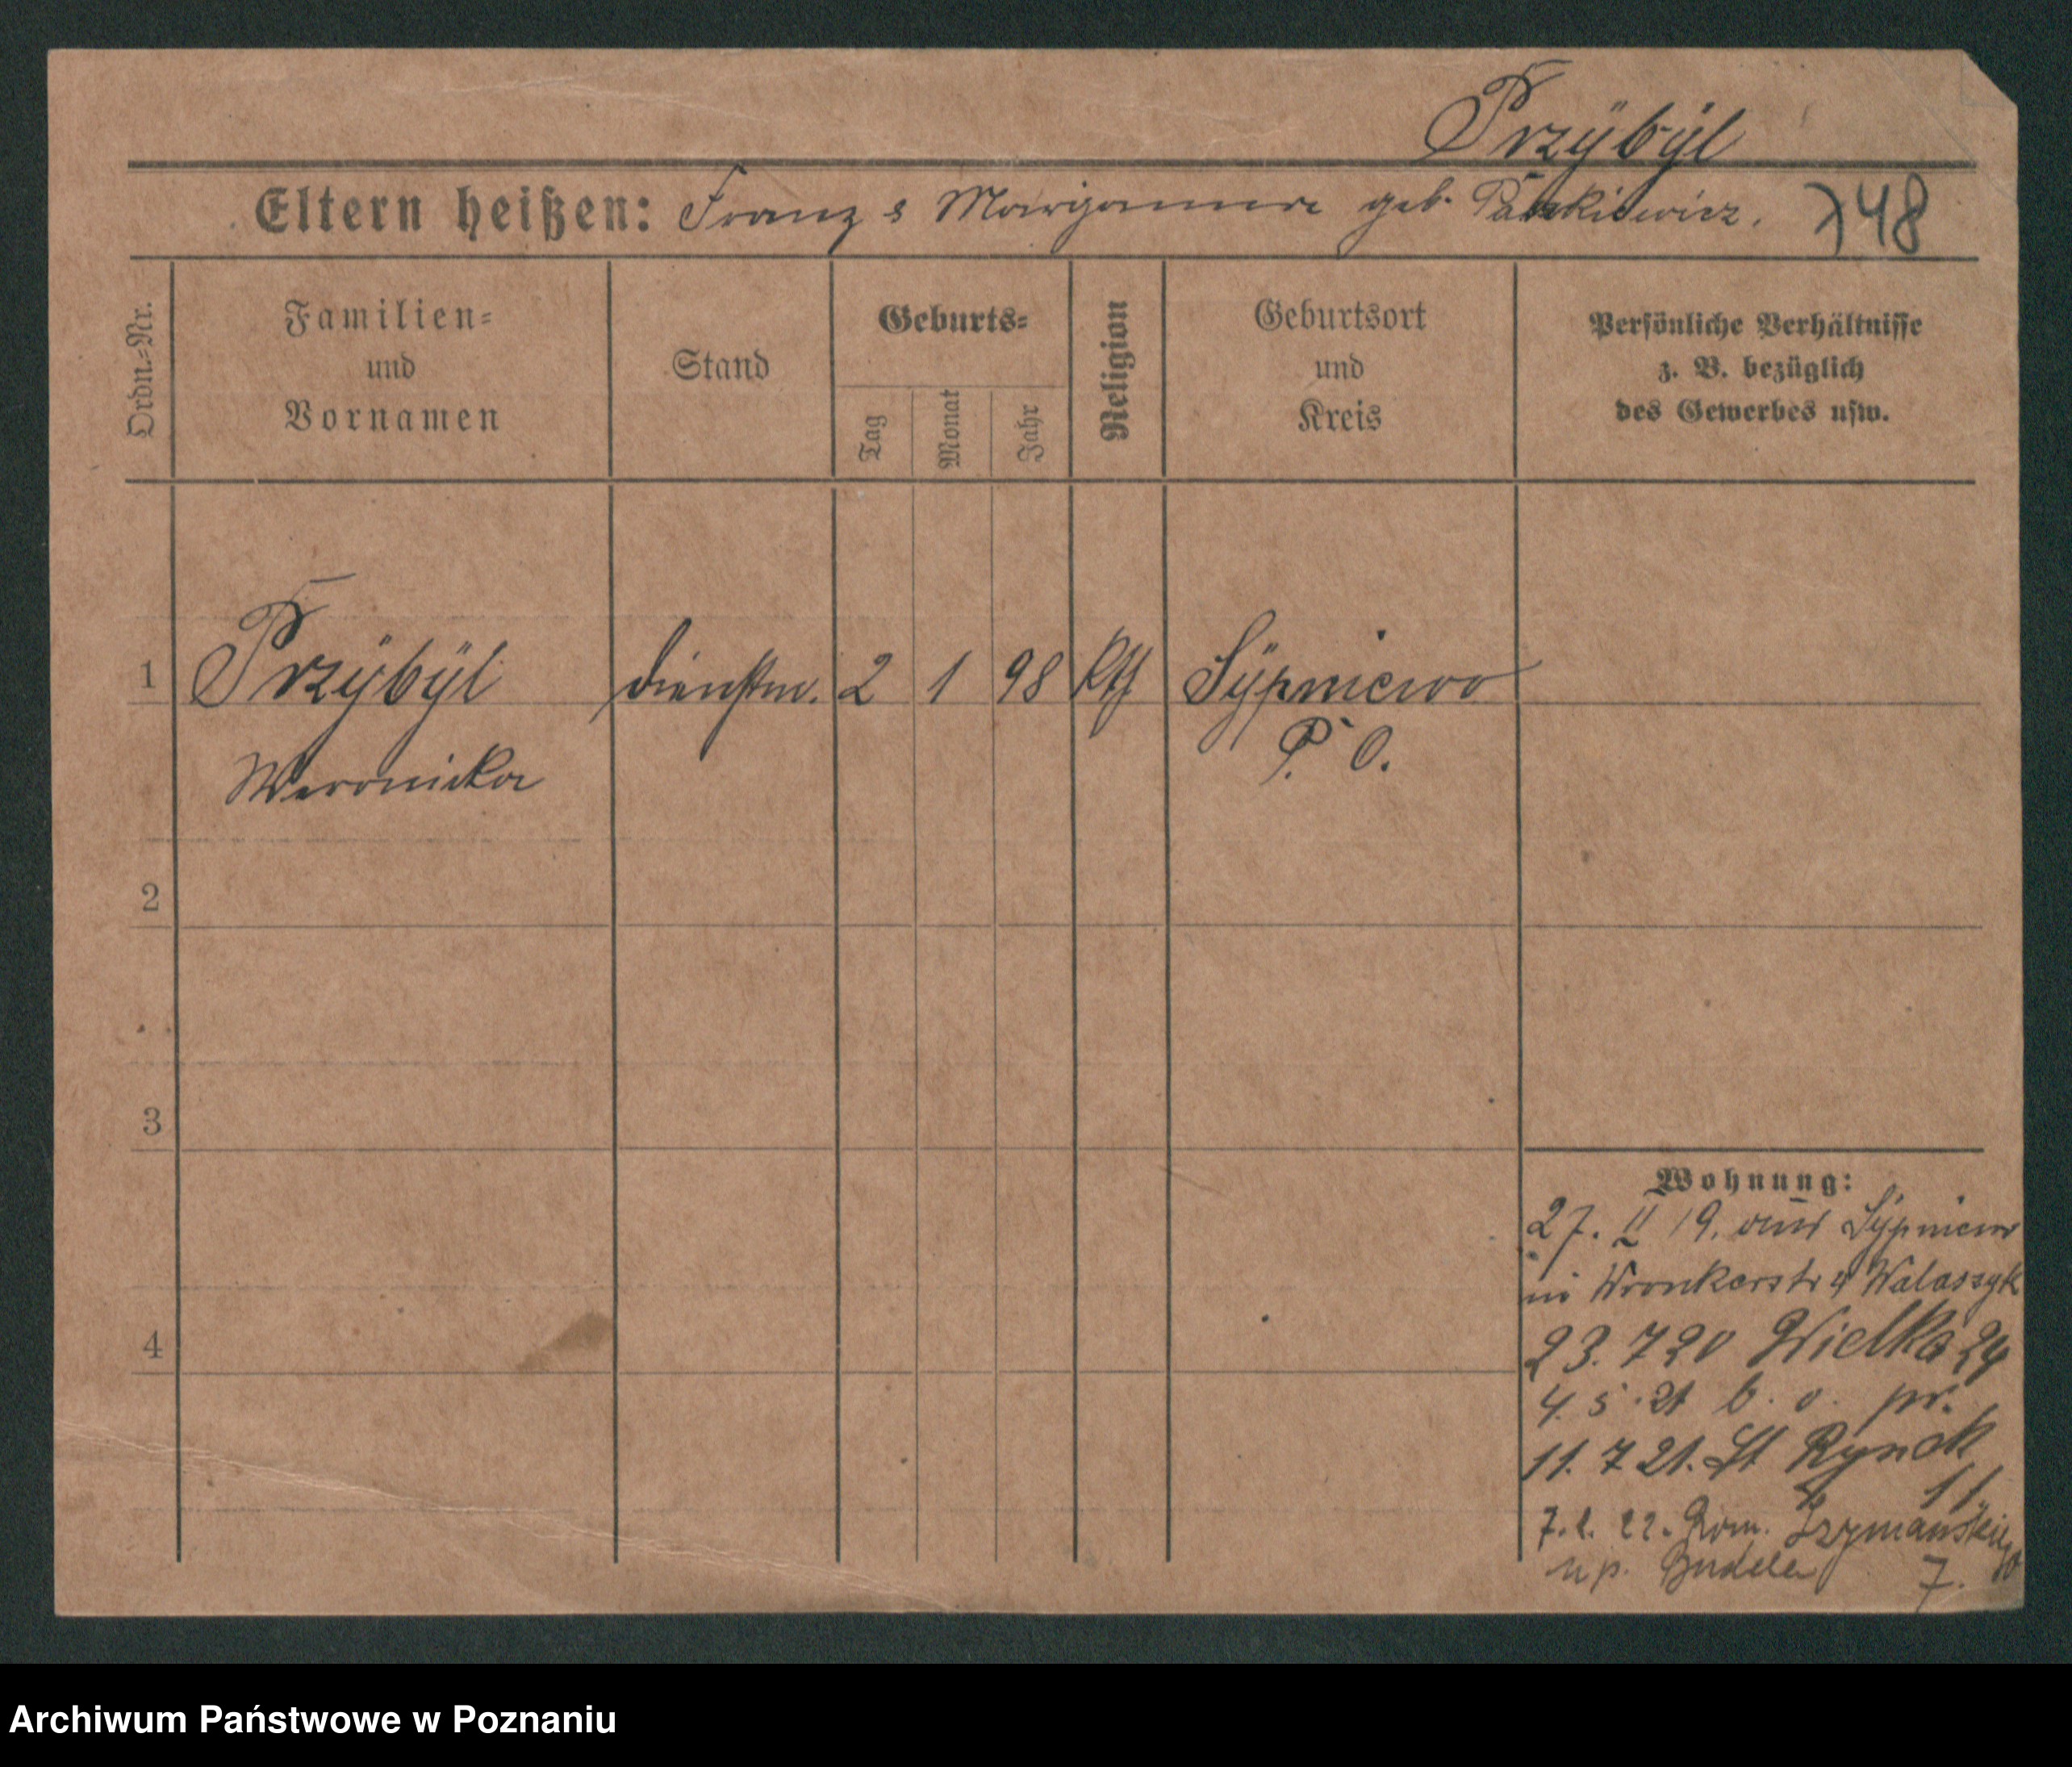 Przÿbÿl
Eltern heißen: Franz & Marganne geb. Paszkiewicz. 748
Ordn.-Nr.
Familien-
und
Vornamen
Stand
Geburts-
Tag
Monat
Jahr
Religion
Geburtsort
und
Kreis
Persönliche Verhältnisse
z. B. bezüglich
des Gewerbes usw.
1 Przÿbÿl dienstm. 2 1 98 kth Sÿpniewo
P. O.
Weronicka
2
3
4
Wohnung:
27. II 19. aus Sÿpniewo
in Wronkerstr 4 Walaszyk
23. 7 20 Wielka 24
4. 5. 21 b. o. pr.
11. 7 21. St Rynek
11
7. 2. 22. Rom. Szymańskiego
up. 7.
Archiwum Państwowe w Poznaniu